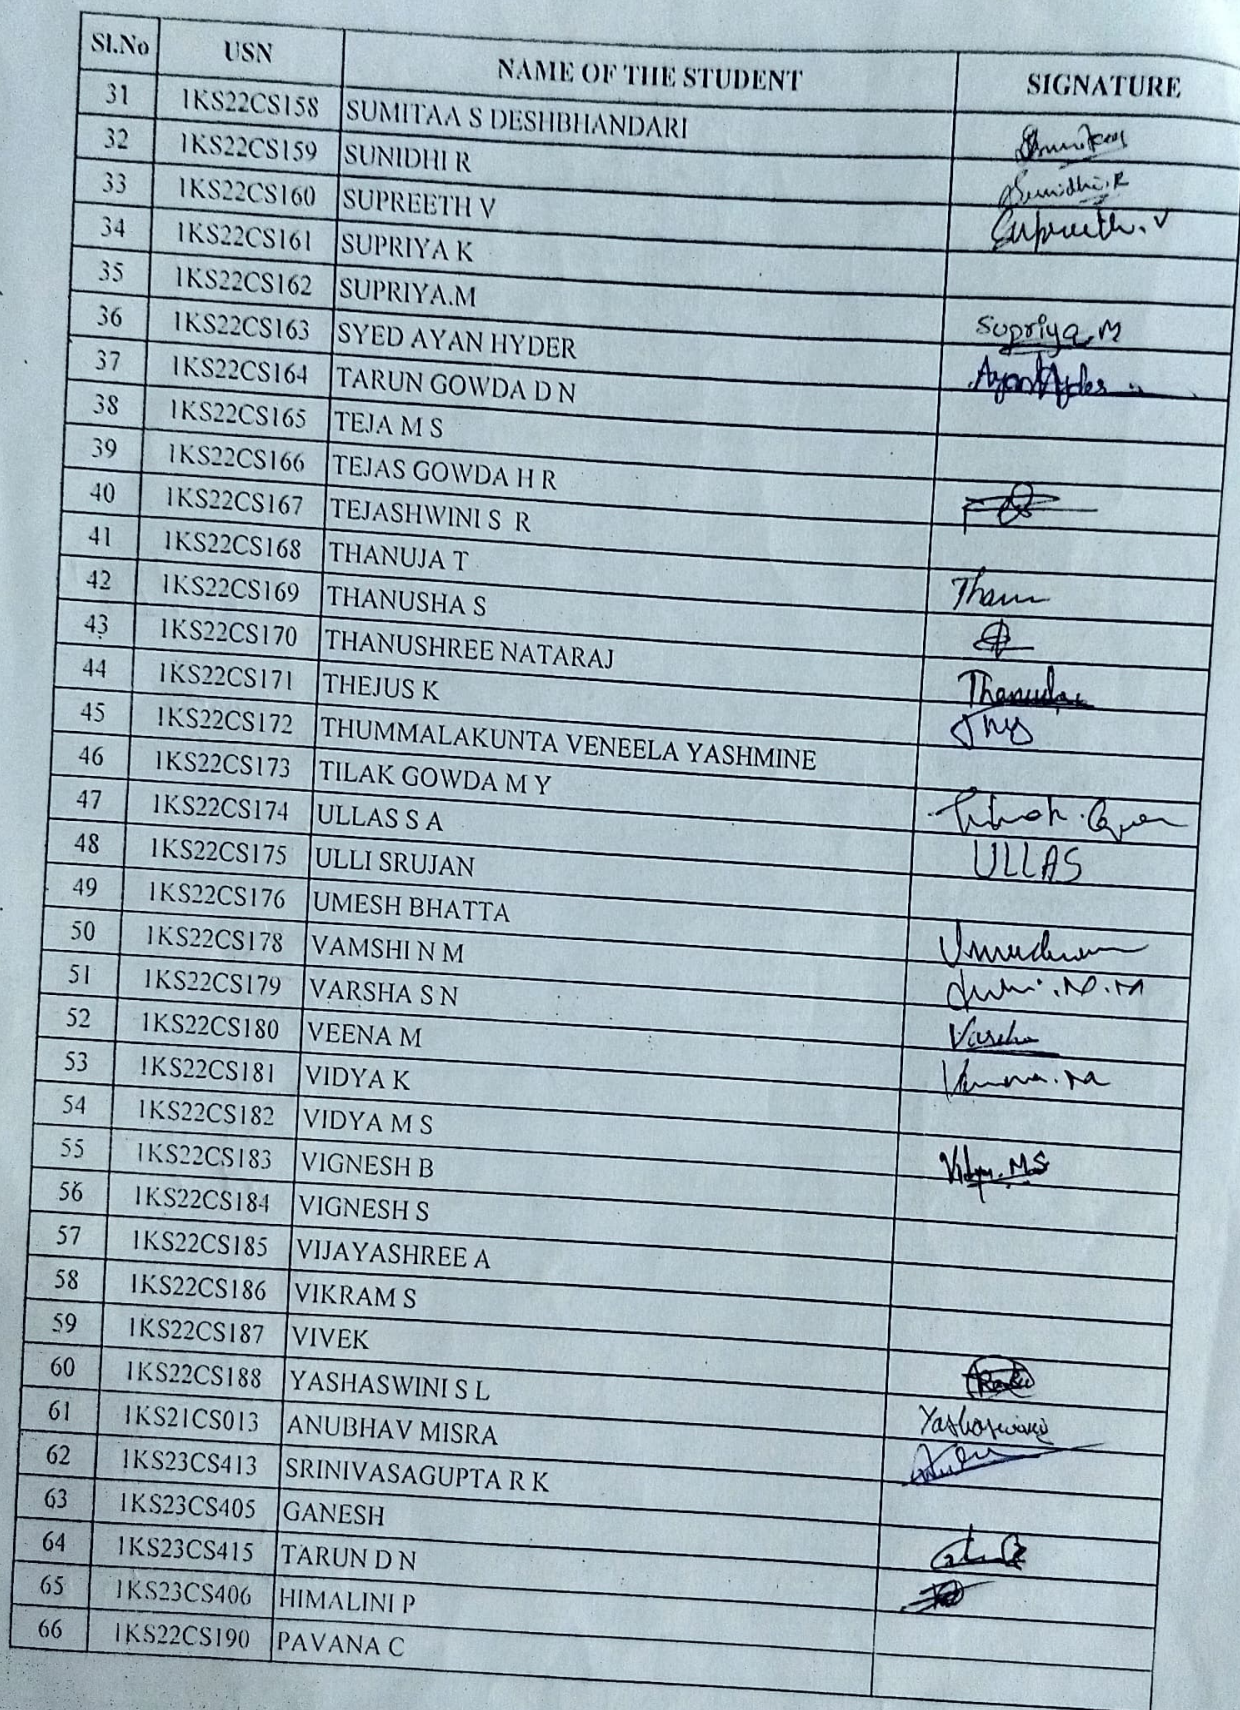 Sl.No USN NAME OF THE STUDENT SIGNATURE
31 1KS22CS158 SUMITAA S DESHBHANDARI
32 1KS22CS159 SUNIDHI R Sunidhi.R
33 1KS22CS160 SUPREETH V Supreeth.V
34 1KS22CS161 SUPRIYA K
35 1KS22CS162 SUPRIYA.M Supriya.M
36 1KS22CS163 SYED AYAN HYDER AyanHyder
37 1KS22CS164 TARUN GOWDA D N
38 1KS22CS165 TEJA M S
39 1KS22CS166 TEJAS GOWDA H R
40 1KS22CS167 TEJASHWINI S R
41 1KS22CS168 THANUJA T
42 1KS22CS169 THANUSHA S
43 1KS22CS170 THANUSHREE NATARAJ
44 1KS22CS171 THEJUS K
45 1KS22CS172 THUMMALAKUNTA VENEELA YASHMINE
46 1KS22CS173 TILAK GOWDA M Y
47 1KS22CS174 ULLAS S A ULLAS
48 1KS22CS175 ULLI SRUJAN
49 1KS22CS176 UMESH BHATTA
50 1KS22CS178 VAMSHI N M
51 1KS22CS179 VARSHA S N Varsha
52 1KS22CS180 VEENA M
53 1KS22CS181 VIDYA K
54 1KS22CS182 VIDYA M S Vidya.MS
55 1KS22CS183 VIGNESH B
56 1KS22CS184 VIGNESH S
57 1KS22CS185 VIJAYASHREE A
58 1KS22CS186 VIKRAM S
59 1KS22CS187 VIVEK
60 1KS22CS188 YASHASWINI S L Yashaswini
61 1KS21CS013 ANUBHAV MISRA
62 1KS23CS413 SRINIVASAGUPTA R K
63 1KS23CS405 GANESH
64 1KS23CS415 TARUN D N
65 1KS23CS406 HIMALINI P
66 1KS22CS190 PAVANA C